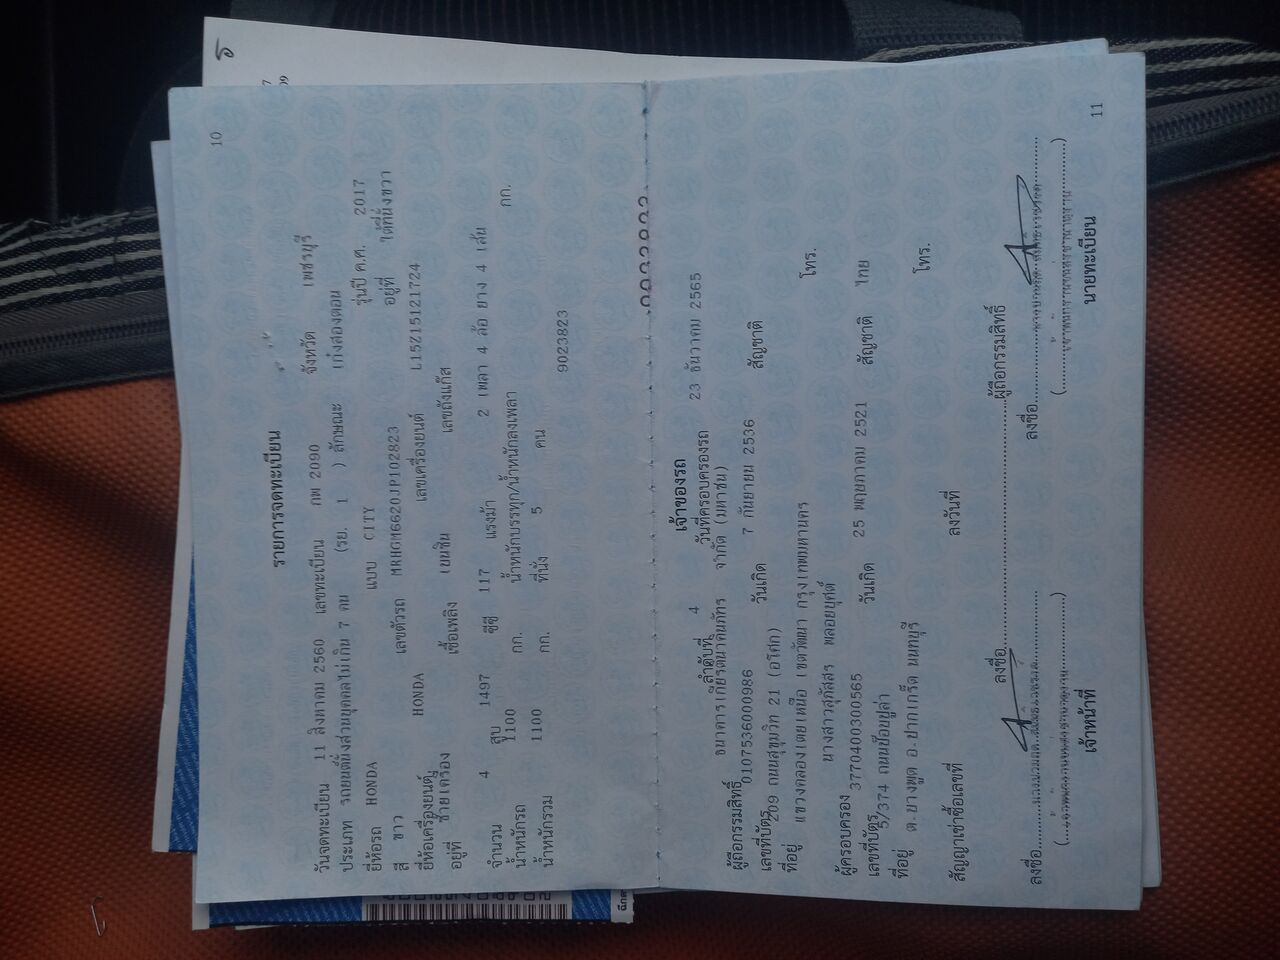 10
รายการจดทะเบียน
วันจดทะเบียน 11 สิงหาคม 2560 เลขทะเบียน กพ 2090 จังหวัด เพชรบุรี
ประเภท รถยนต์นั่งส่วนบุคคลไม่เกิน 7 คน (รย. 1 ) ลักษณะ เก๋งสองตอน
ยี่ห้อรถ HONDA แบบ CITY รุ่นปี ค.ศ. 2017
สี ขาว เลขตัวรถ MRHGM6620JP102823 อยู่ที่ ใต้ที่นั่งขวา
ยี่ห้อเครื่องยนต์ HONDA เลขเครื่องยนต์ L15Z15121724
อยู่ที่ ซ้ายเครื่อง เชื้อเพลิง เบนซิน เลขถังแก๊ส
จำนวน 4 สูบ 1497 ซีซี 117 แรงม้า 2 เพลา 4 ล้อ ยาง 4 เส้น
น้ำหนักรถ 1100 กก. น้ำหนักบรรทุก/น้ำหนักลงเพลา กก.
น้ำหนักรวม 1100 กก. ที่นั่ง 5 คน
9023823
เจ้าของรถ
ลำดับที่ 4 วันที่ครอบครองรถ 23 ธันวาคม 2565
ผู้ถือกรรมสิทธิ์ ธนาคารเกียรตินาคินภัทร จำกัด (มหาชน)
เลขที่บัตร 0107536000986 วันเกิด 7 กันยายน 2536 สัญชาติ
ที่อยู่ 209 ถนนสุขุมวิท 21 (อโศก)
แขวงคลองเตยเหนือ เขตวัฒนา กรุงเทพมหานคร โทร.
ผู้ครอบครอง นางสาวสุภัสสร พลอยบุศต์
เลขที่บัตร 3770400300565 วันเกิด 25 พฤษภาคม 2521 สัญชาติ ไทย
ที่อยู่ 5/374 ถนนป๊อปปูล่า
ต.บางพูด อ.ปากเกร็ด นนทบุรี โทร.
สัญญาเช่าซื้อเลขที่ ลงวันที่
ลงชื่อ ผู้ถือกรรมสิทธิ์
ลงชื่อ ลงชื่อ
เจ้าหน้าที่ นายทะเบียน
11